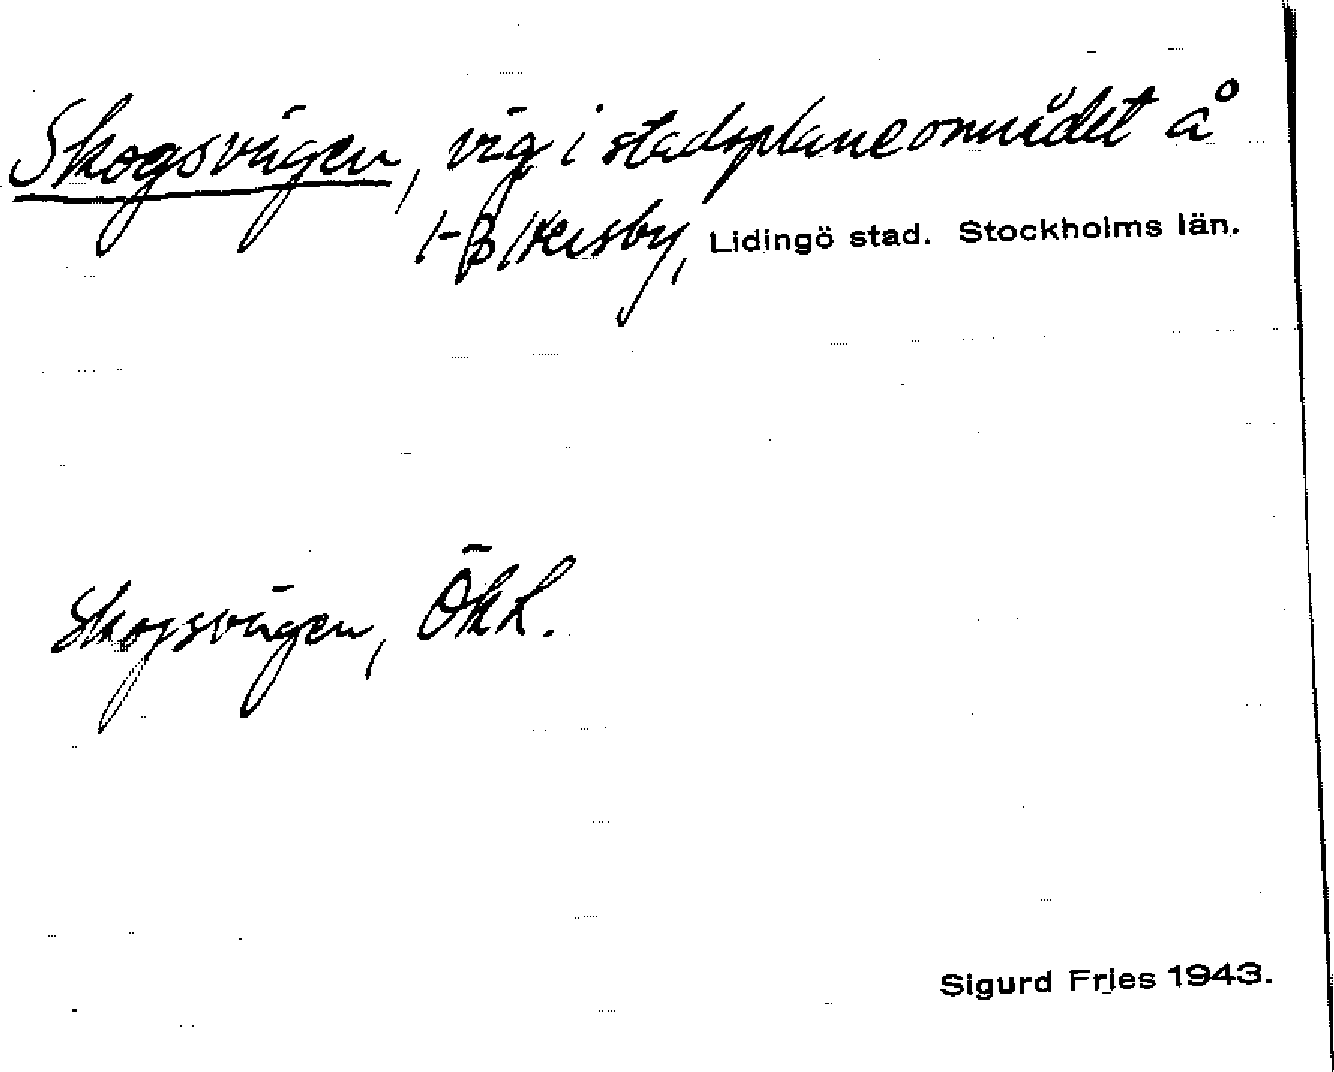 Skogsvägen, väg i stadsplaneområdet å
Hersby, Lidingö stad. Stockholms län.
Skogsvägen,
Sigurd Fries 1943.